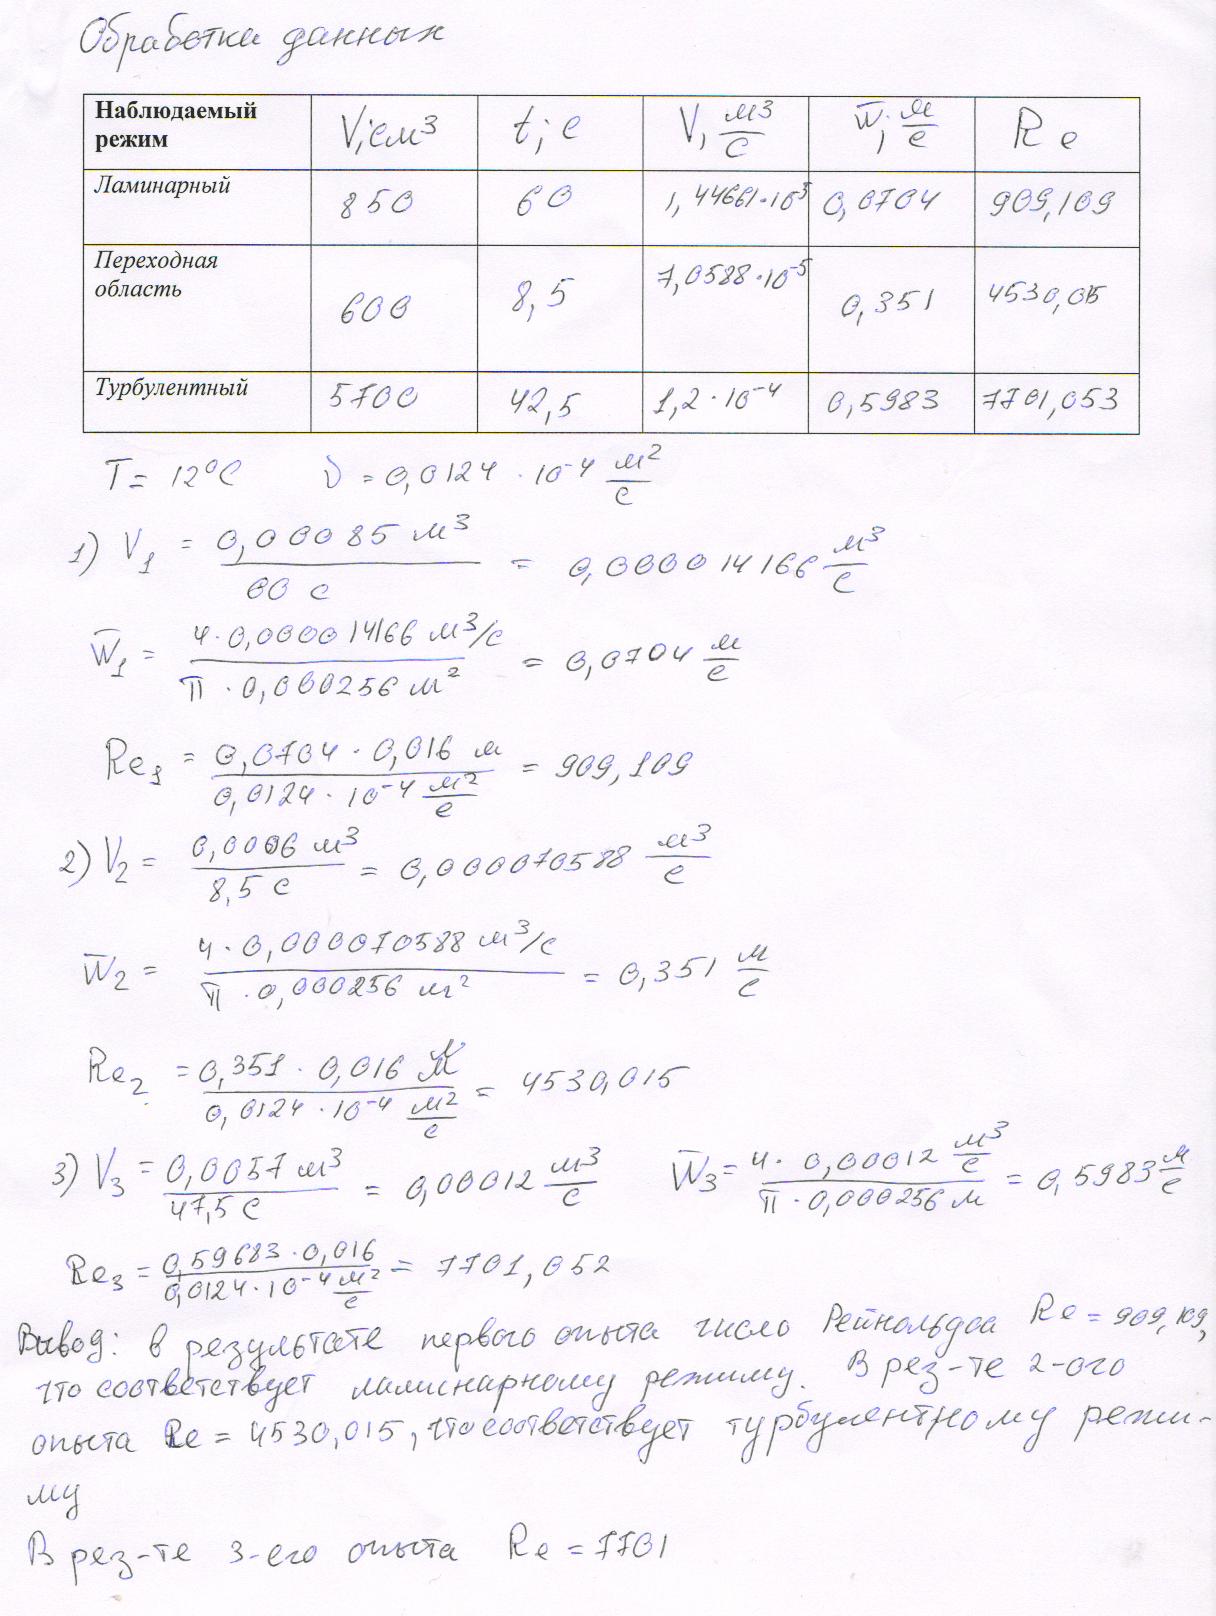 Обработка данных
Наблюдаемый режим | V, см³ | t; с | V, м³/с | w̅; м/с | Re
Ламинарный | 850 | 60 | 1,44661·10⁻⁵ | 0,0704 | 909,109
Переходная область | 600 | 8,5 | 7,0588·10⁻⁵ | 0,351 | 4530,015
Турбулентный | 5700 | 42,5 | 1,2·10⁻⁴ | 0,5983 | 7701,053
T = 12°C ν = 0,0124 · 10⁻⁴ м²/с
1) V₁ = 0,00085 м³ / 60 с = 0,000014166 м³/с
w̅₁ = 4·0,000014166 м³/с / π · 0,000256 м² = 0,0704 м/с
Re₁ = 0,0704 · 0,016 м / 0,0124 · 10⁻⁴ м²/с = 909,109
2) V₂ = 0,0006 м³ / 8,5 с = 0,000070588 м³/с
w̅₂ = 4·0,000070588 м³/с / π · 0,000256 м² = 0,351 м/с
Re₂ = 0,351 · 0,016 м / 0,0124 · 10⁻⁴ м²/с = 4530,015
3) V₃ = 0,0057 м³ / 47,5 с = 0,00012 м³/с w̅₃ = 4· 0,00012 м³/с / π · 0,000256 м = 0,5983 м/с
Re₃ = 0,59683 · 0,016 / 0,0124 · 10⁻⁴ м²/с = 7701,052
Вывод: в результате первого опыта число Рейнольдса Re = 909,109,
что соответствует ламинарному режиму. В рез-те 2-ого
опыта Re = 4530,015, что соответствует турбулентному режи-
му
В рез-те 3-его опыта Re = 7701